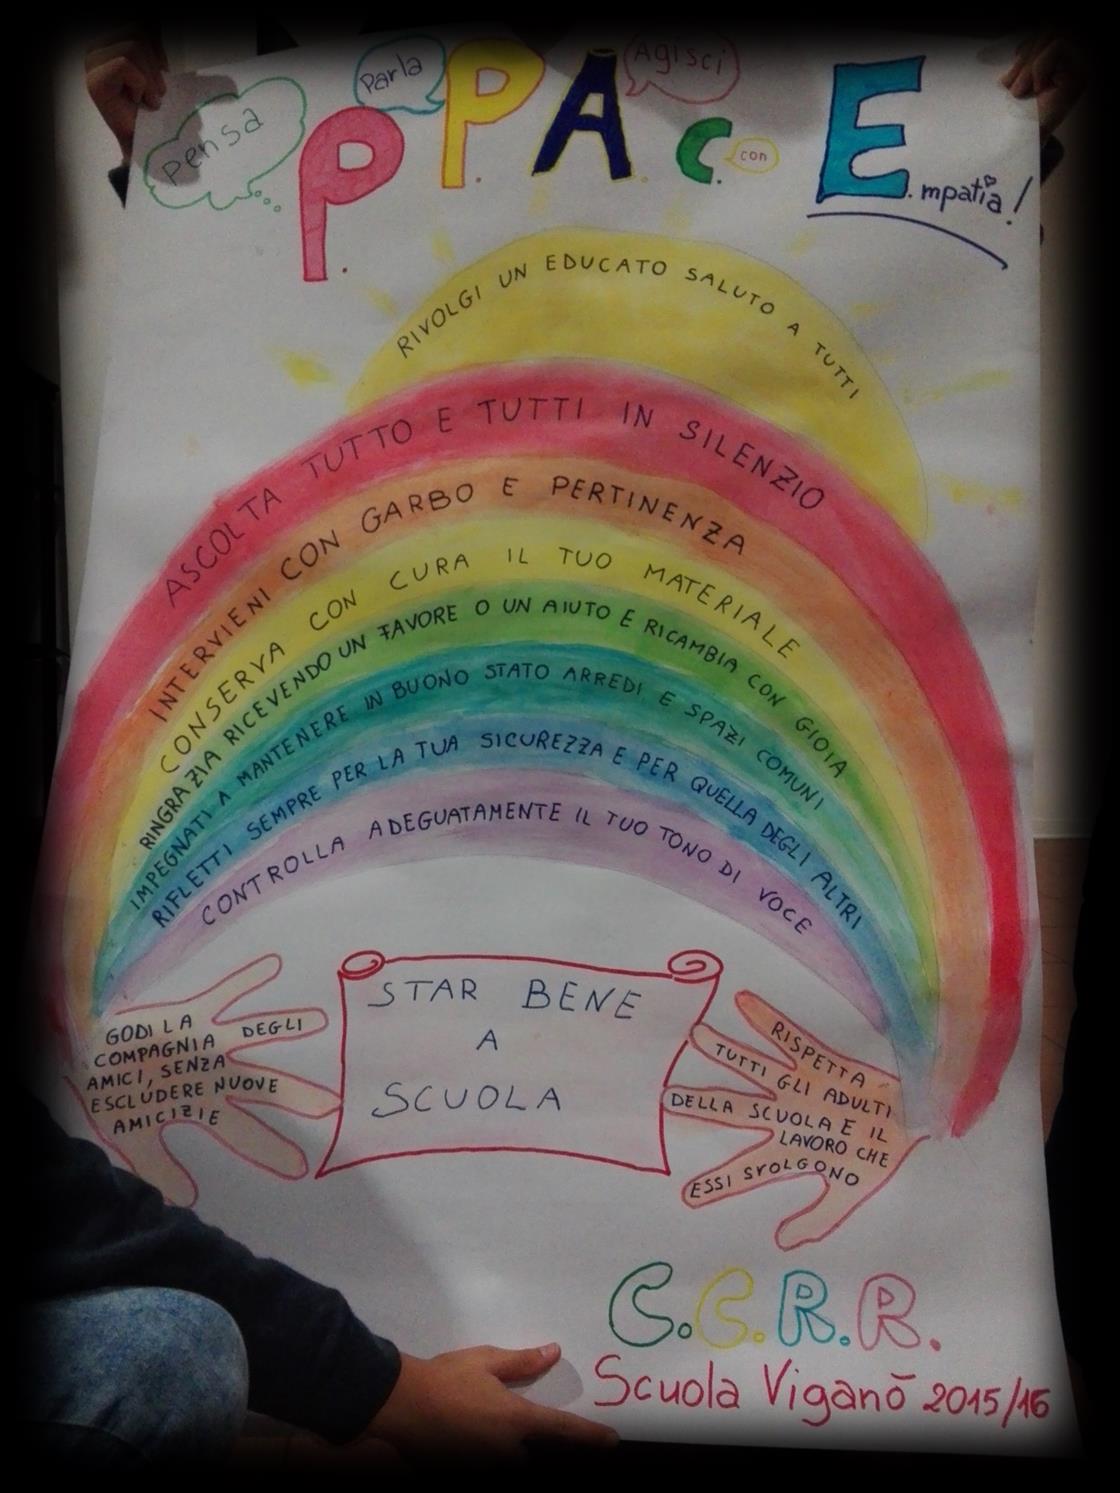 Pensa
Parla
Agisci
P. P. A. C. con E.mpatia!
RIVOLGI UN EDUCATO SALUTO A TUTTI
ASCOLTA TUTTO E TUTTI IN SILENZIO
INTERVIENI CON GARBO E PERTINENZA
CONSERVA CON CURA IL TUO MATERIALE
RINGRAZIA RICEVENDO UN FAVORE O UN AIUTO E RICAMBIA CON GIOIA
IMPEGNATI A MANTENERE IN BUONO STATO ARREDI E SPAZI COMUNI
RIFLETTI SEMPRE PER LA TUA SICUREZZA E PER QUELLA DEGLI ALTRI
CONTROLLA ADEGUATAMENTE IL TUO TONO DI VOCE
GODI LA
COMPAGNIA DEGLI
AMICI, SENZA
ESCLUDERE NUOVE
AMICIZIE
STAR BENE
A
SCUOLA
RISPETTA
TUTTI GLI ADULTI
DELLA SCUOLA E IL
LAVORO CHE
ESSI SVOLGONO
C.C.R.R.
Scuola Viganò 2015/16